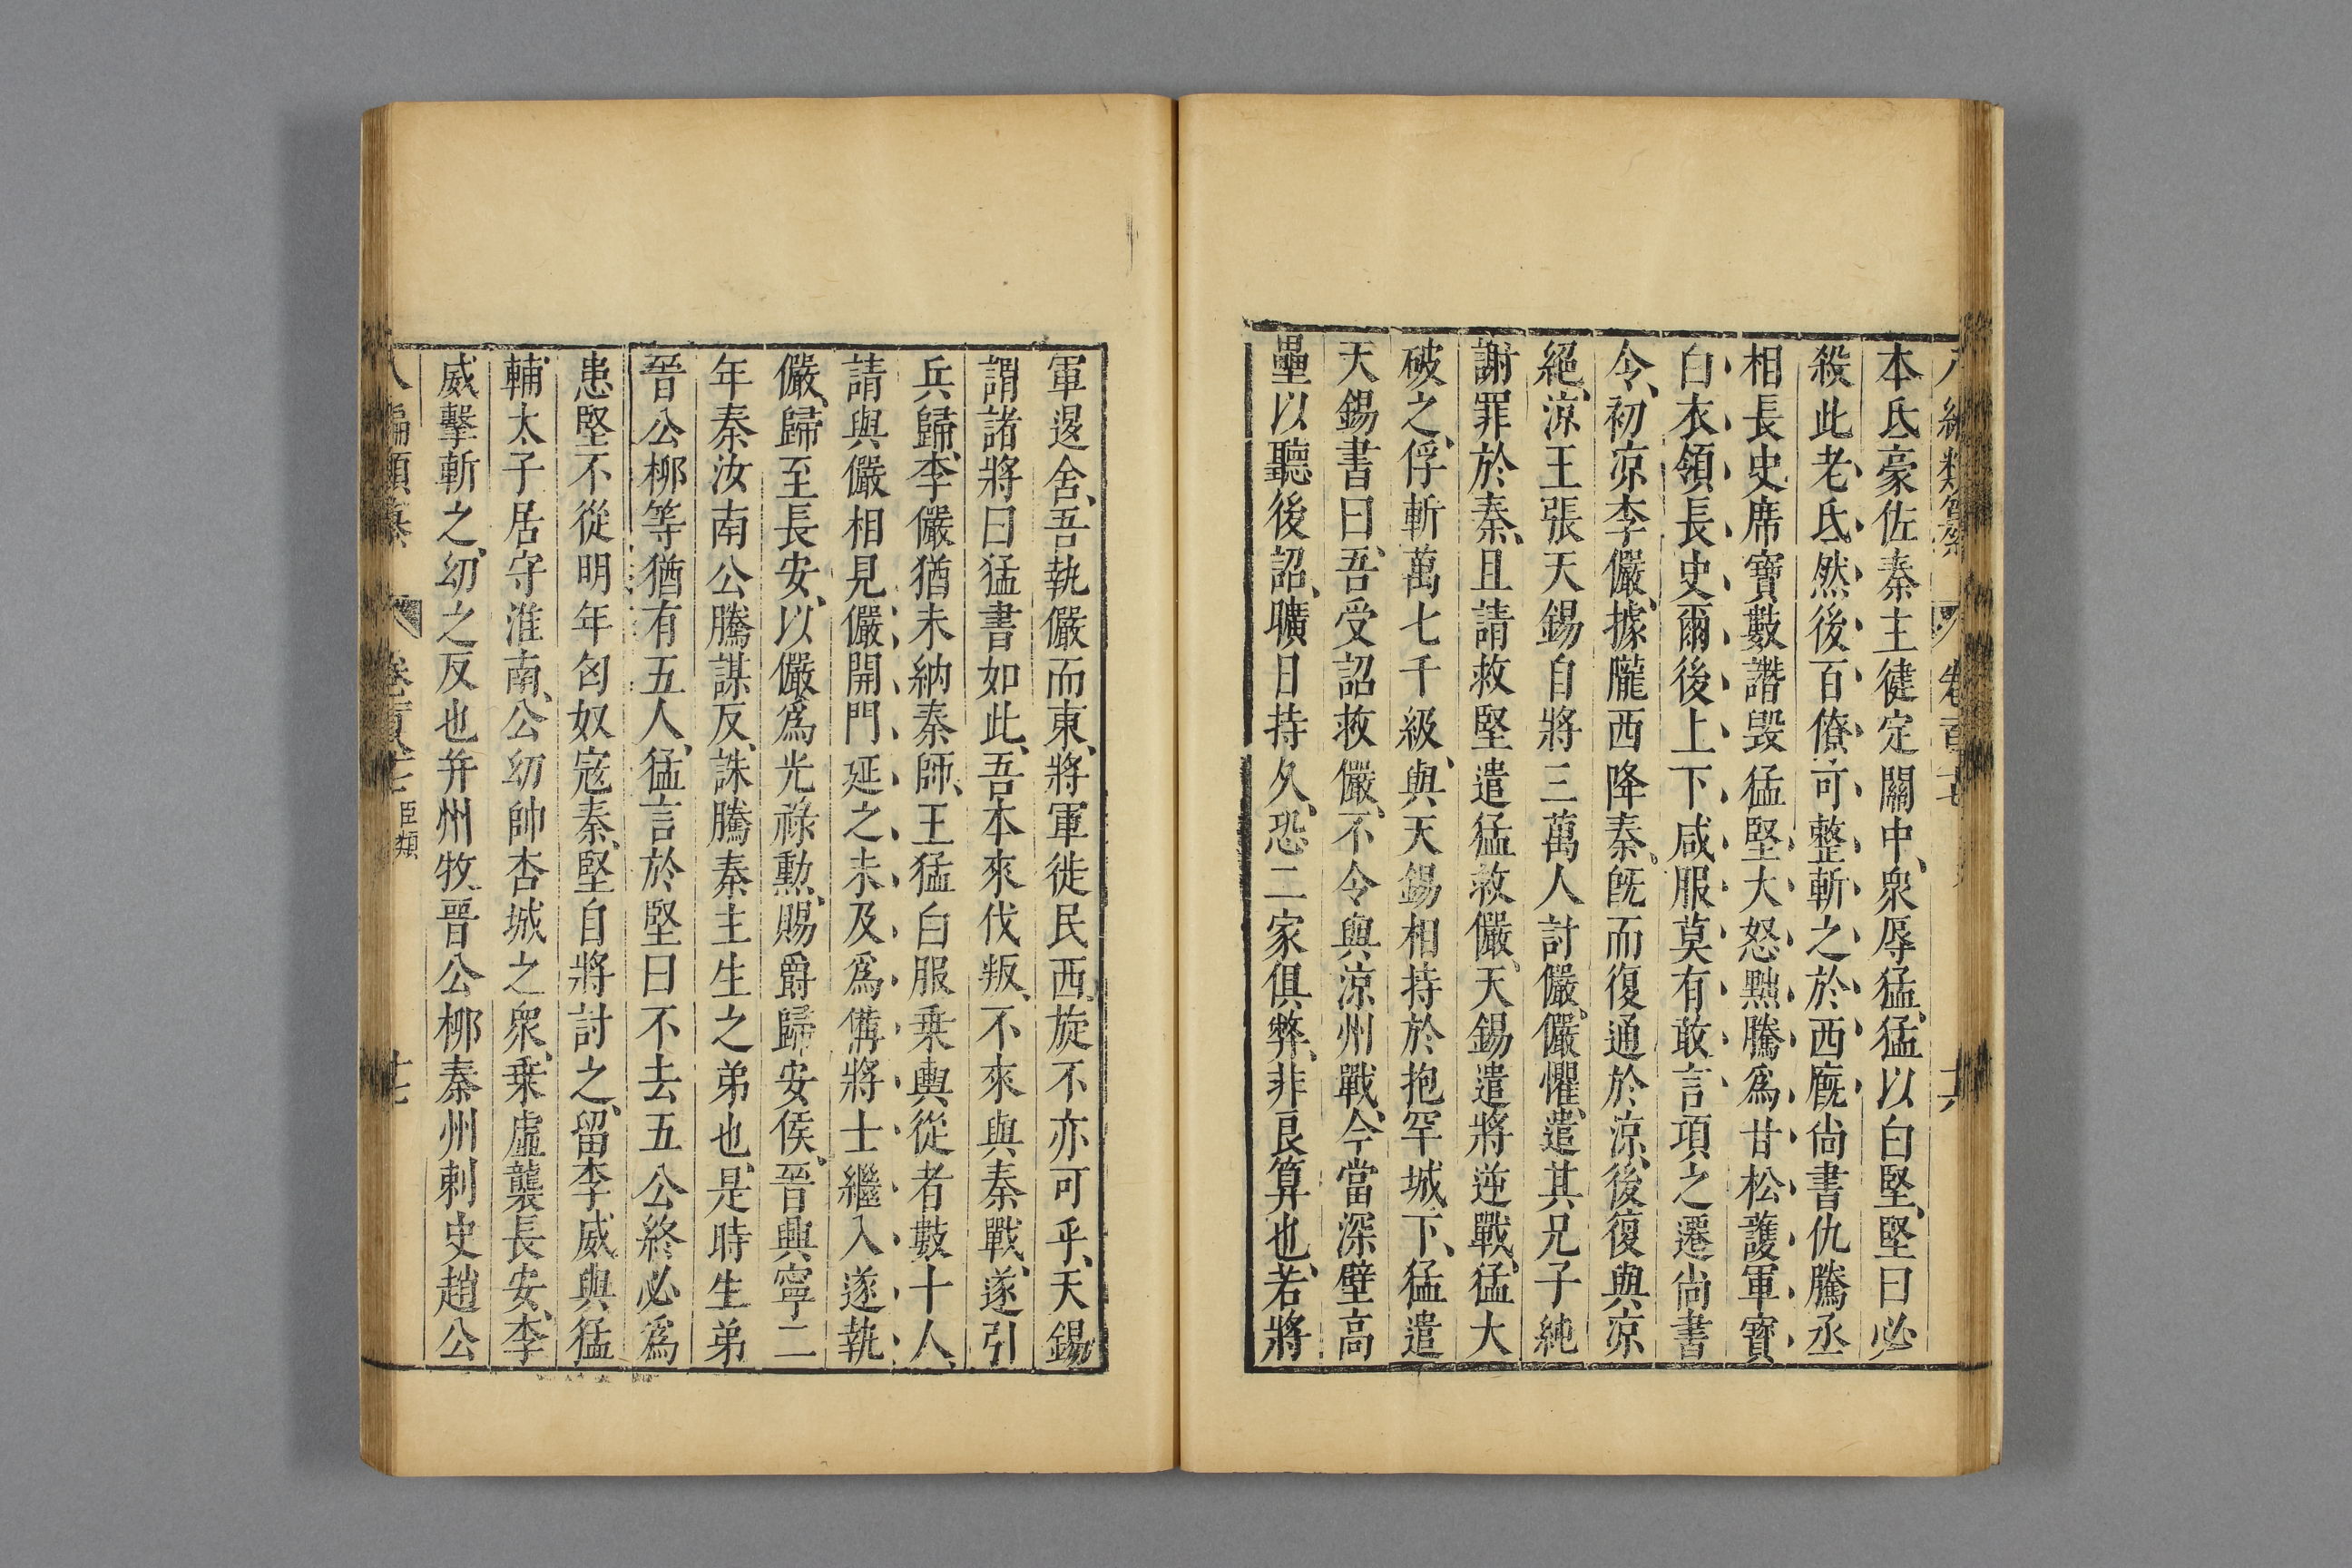 本氐豪佐秦主健定關中、衆辱猛、猛以白堅、堅曰必
殺此老氐然後百僚可整斬之於西廐尚書仇騰丞
相長史席寶數譖毀猛堅大怒黜騰爲甘松護軍寶
白衣領長史爾後上下咸服莫有敢言項之遷尚書
令、初凉李儼、據隴西降秦。旣而復通於凉、後復與凉
絕、凉王張天錫自將三萬人討儼、儼懼、遣其兄子純
謝罪於秦、且請救堅遣猛救儼、天錫遣將逆戰、猛大
破之、俘斬萬七千級、與天錫相持於抱罕城下、猛遣
天錫書曰、吾受詔救儼、不令與凉州戰、今當深壁高
壘以聽後詔、曠日持久、恐二家俱弊、非良算也、若將
軍退舍、吾執儼而東、將軍徙民西旋不亦可乎、天錫
謂諸將曰猛書如此、吾本來伐叛、不來與秦戰、遂引
兵歸、李儼猶未納秦師、王猛白服乗輿從者數十人、
請與儼相見儼開門延之未及爲備將士繼入遂執
儼、歸至長安、以儼爲光祿勲、賜爵歸安侯、晉興寧二
年秦汝南公騰謀反、誅騰秦主生之弟也、是時生弟
晉公柳等猶有五人、猛言於堅曰不去五公終必爲
患堅不從明年匈奴宼秦、堅自將討之、留李威與猛
輔太子居守淮南、公幼帥杏城之衆、乗虛襲長安、李
威擊斬之、幼之反也并州牧晉公柳秦州刺史趙公
八編類纂 卷百 臣類 十七